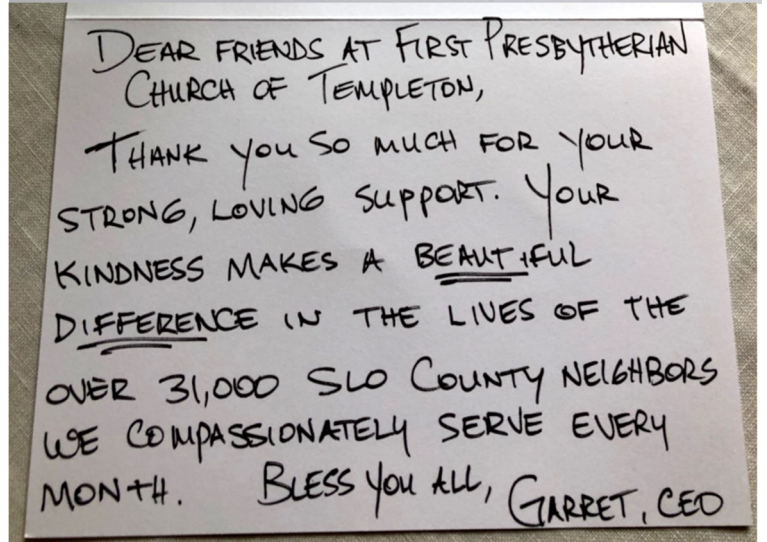 DEAR FRIENDS AT FIRST PRESBYTHERIAN
CHURCH OF TEMPLETON,
THANK YOU SO MUCH FOR YOUR
STRONG, LOVING SUPPORT. YOUR
KINDNESS MAKES A BEAUTIFUL
DIFFERENCE IN THE LIVES OF THE
OVER 31,000 SLO COUNTY NEIGHBORS
WE COMPASSIONATELY SERVE EVERY
MONTH. BLESS YOU ALL, GARRET, CEO